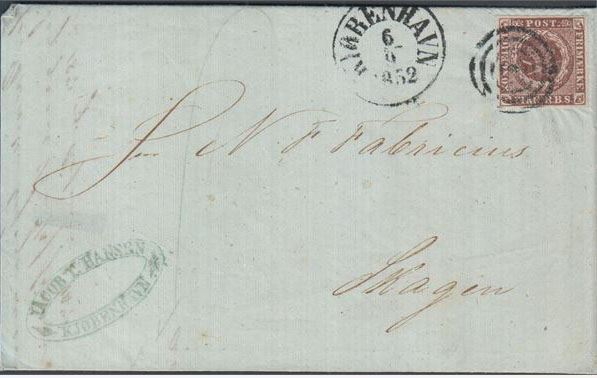 KIØBENHAVN
6
1852
POST
FRIMÆRKE
FIRE R.B.S.
N F Fabricius
Skagen
JACOB T. HANSEN
KJØBENHAVN